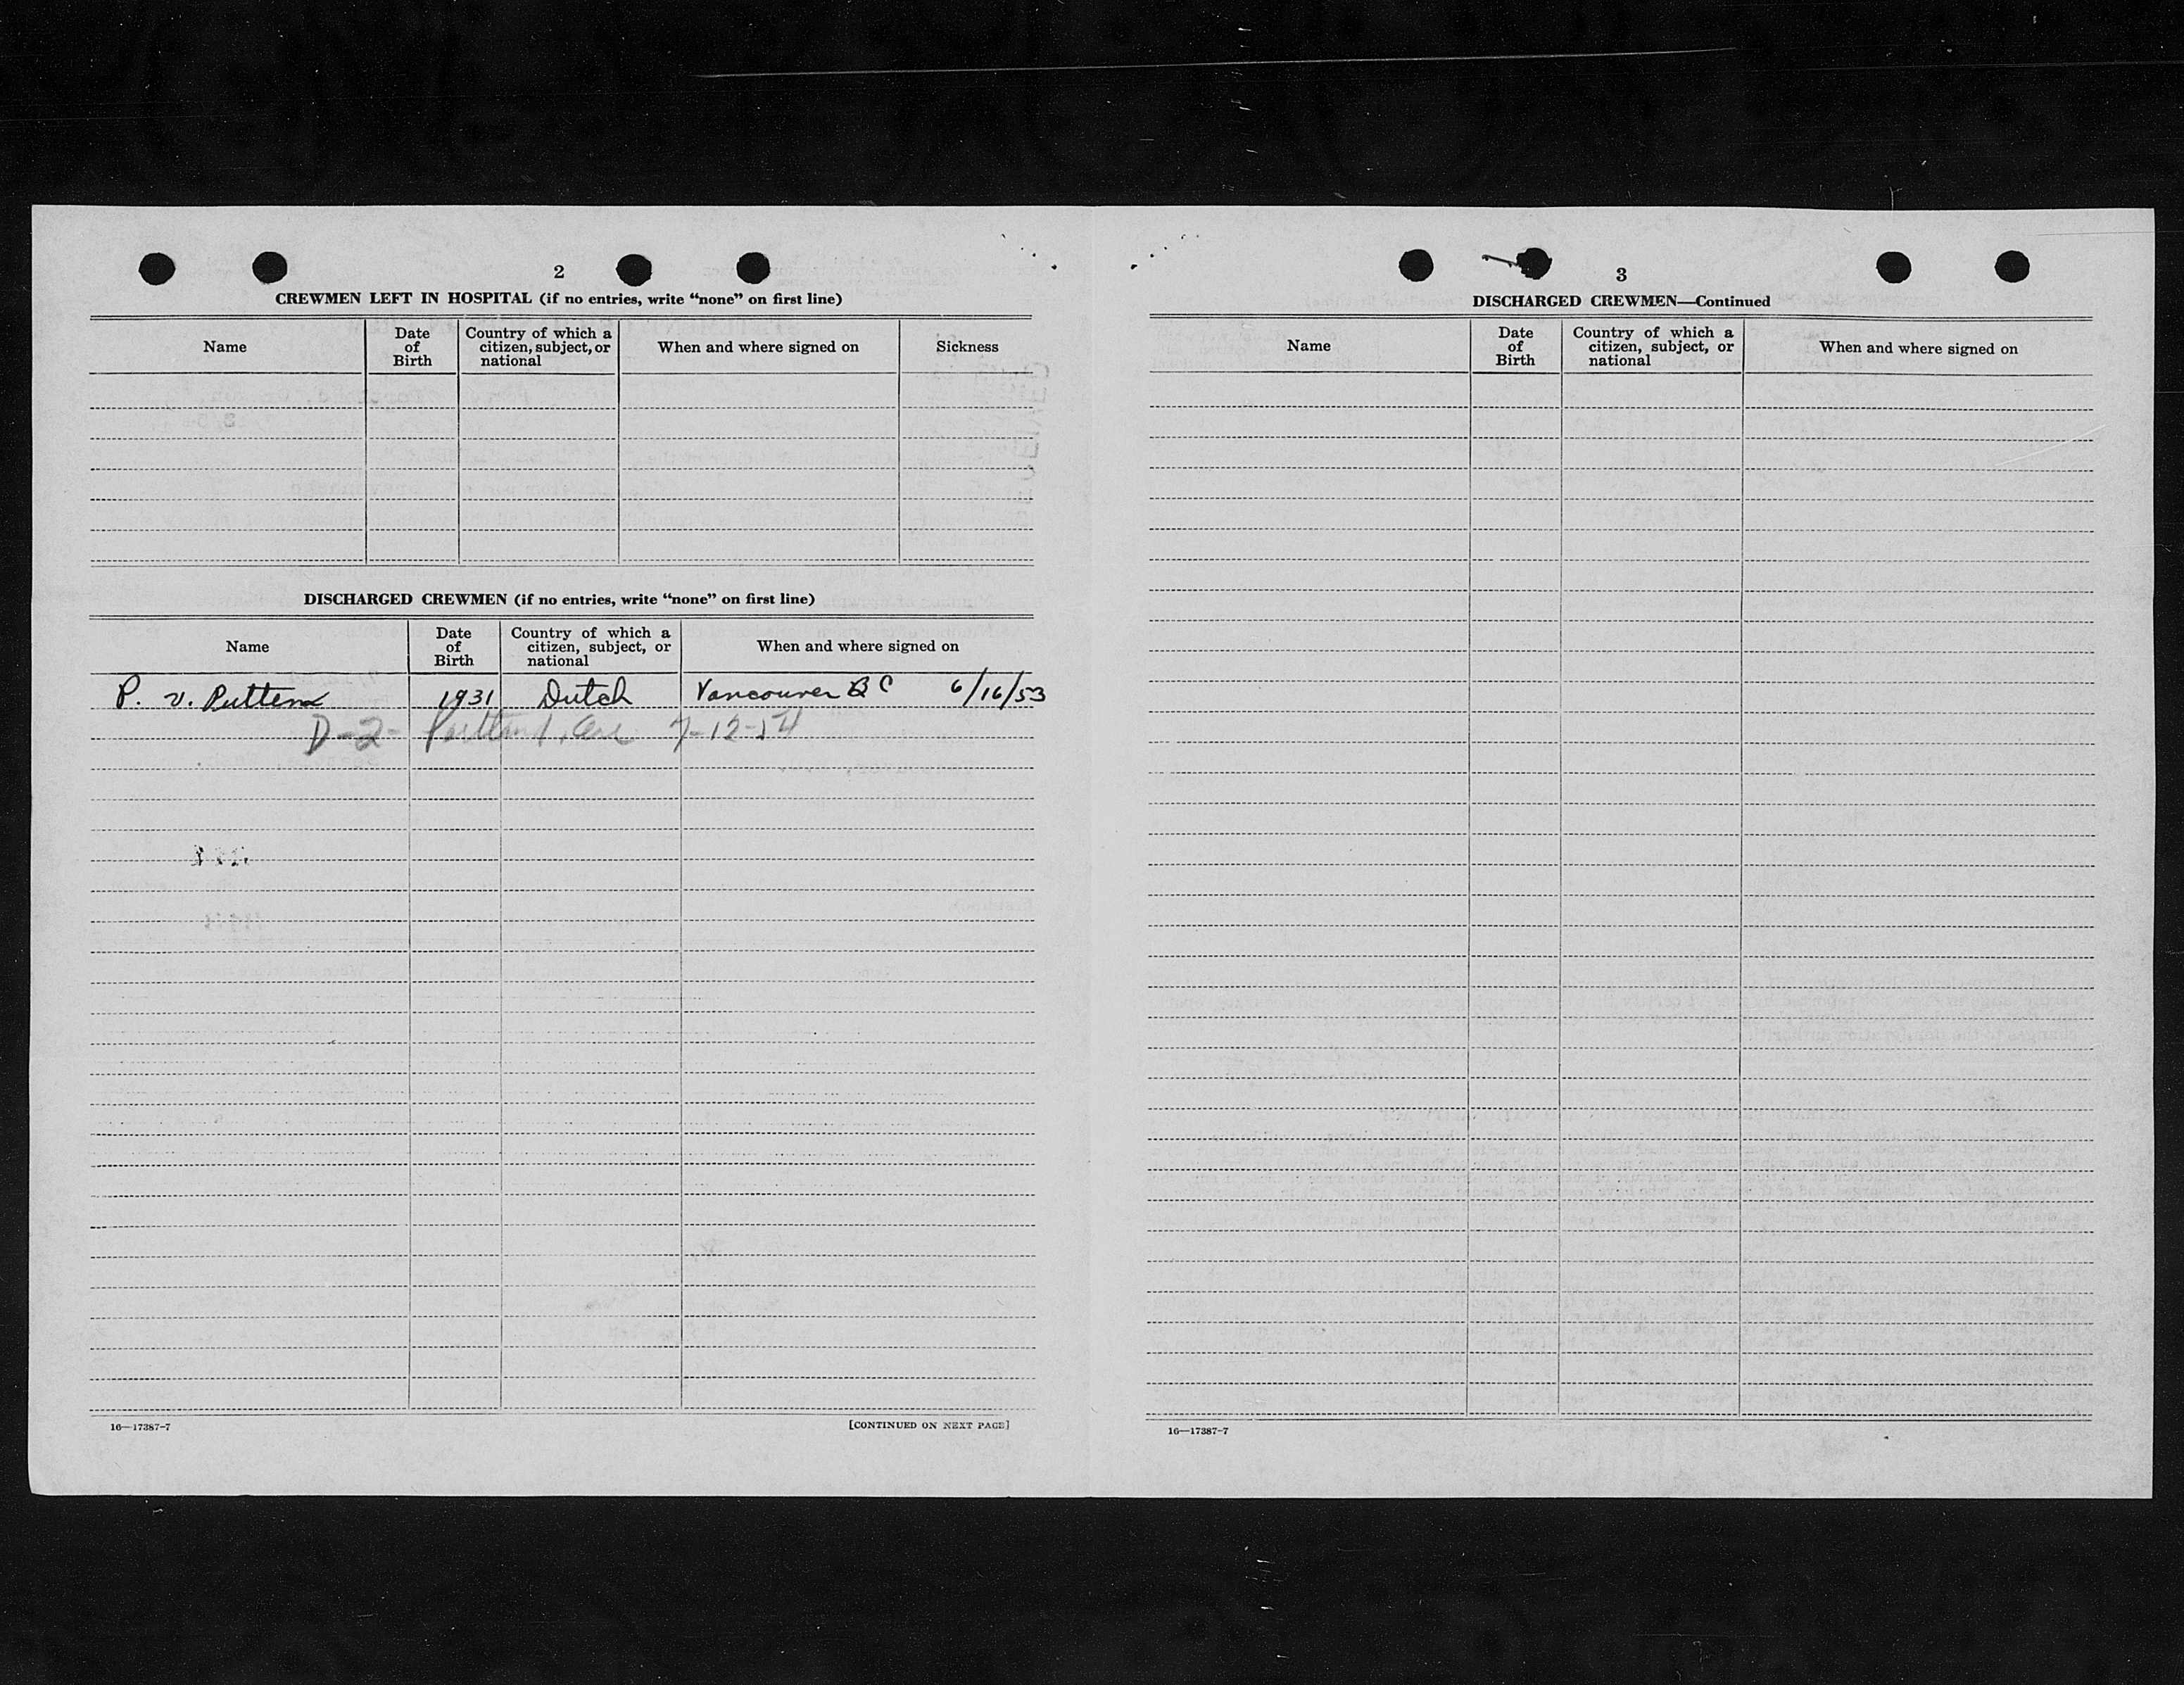 2
CREWMEN LEFT IN HOSPITAL (if no entries, write “none” on first line)
Name
Date of Birth
Country of which a citizen, subject, or national
When and where signed on
Sickness
DISCHARGED CREWMEN (if no entries, write “none” on first line)
Name
Date of Birth
Country of which a citizen, subject, or national
When and where signed on
P. v. Putten 1931 Dutch Vancouver B C 6/16/53
D-2- Portland, Ore 7-12-54
16—17387-7
[CONTINUED ON NEXT PAGE]
3
DISCHARGED CREWMEN—Continued
Name
Date of Birth
Country of which a citizen, subject, or national
When and where signed on
16—17387-7